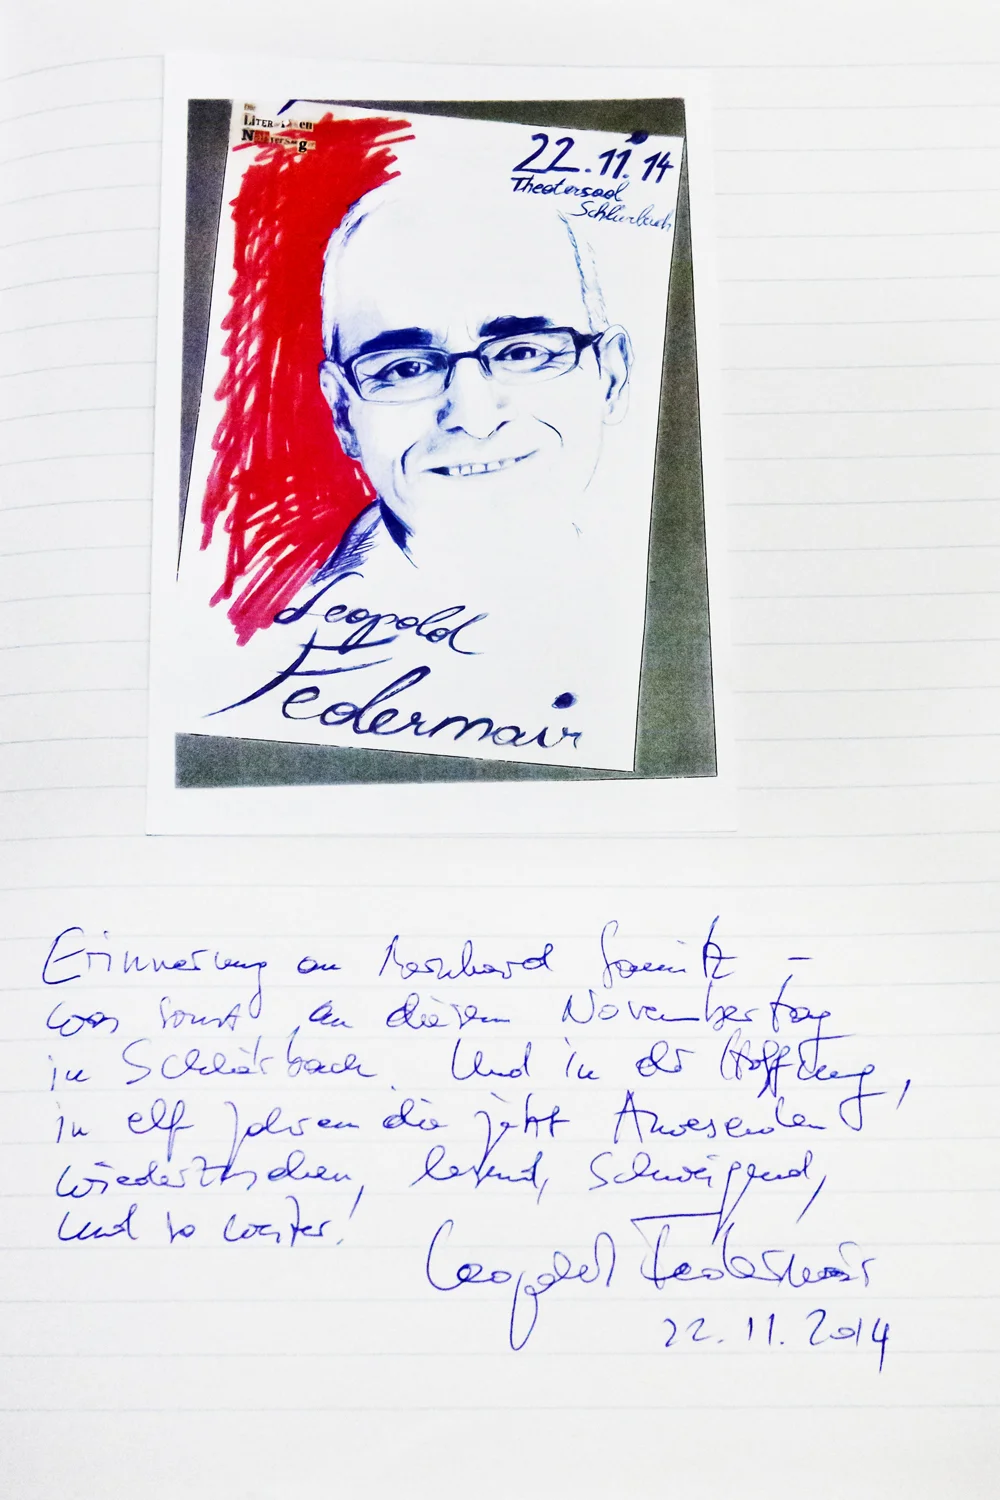 22.11.14
Theatersaal
Schlierbach
Leopold
Federmair
Erinnerung an Bernhard
was sonst, an diesem Novembertag
in Schlierbach. Und in der Hoffnung,
in elf Jahren die jetzt Anwesenden
wiederzusehen, lesend, schweigend,
und so weiter!
Leopold Federmair
22.11.2014